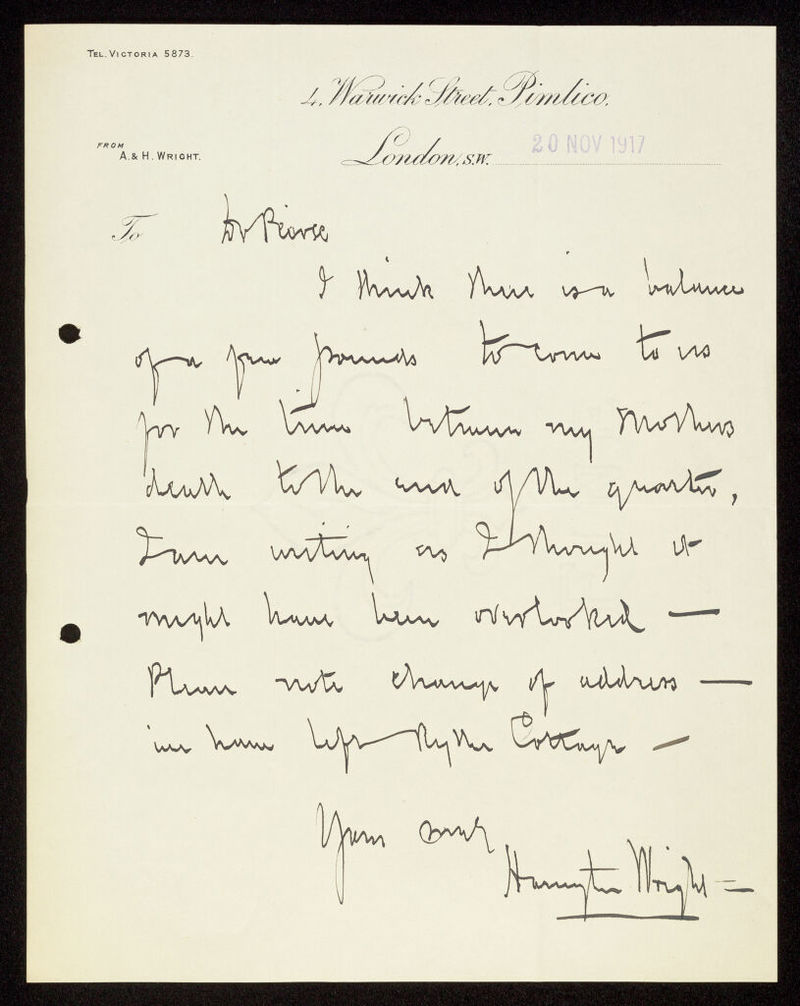 TEL. VICTORIA 5873.
4, Warwick Street, Pimlico,
FROM
A. & H. WRIGHT.
London, S.W. 20 NOV 1917
To Dr Pierse
I think there is a balance
of a few pounds to come to us
for the time between my Mothers
death to the end of the quarter,
I am writing as I thought it
might have been overlooked —
Please note change of address —
we have left Rythe Cottage —
Yours
Wright =